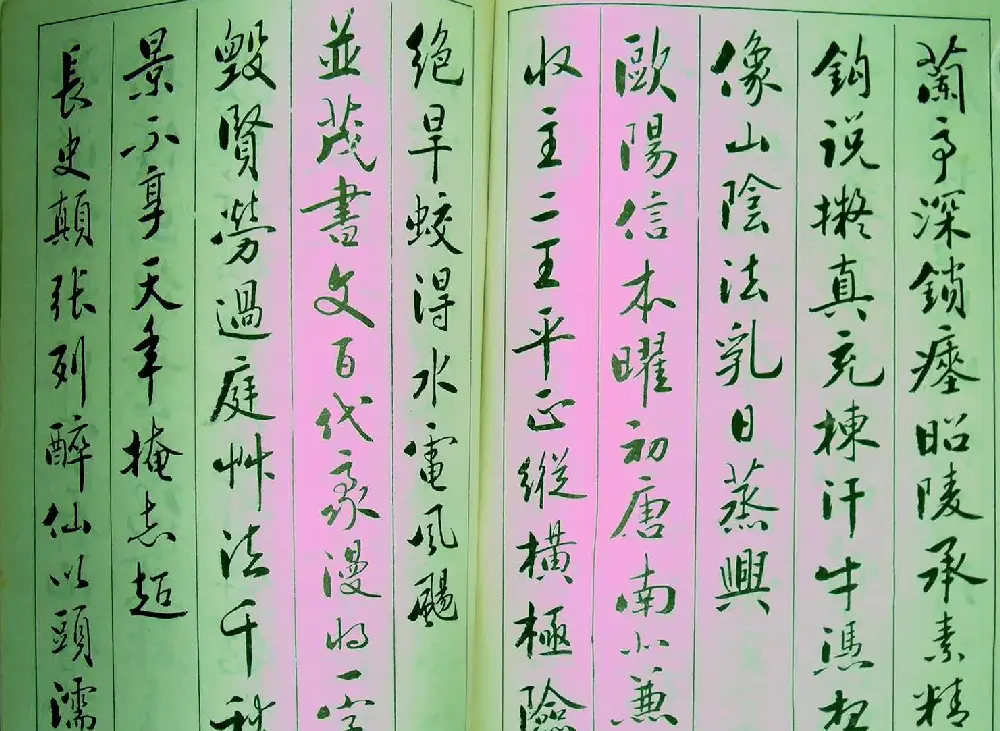 蘭亭深鎖瘞昭陵承素精
鈎说擬真充棟汗牛憑
像山陰法乳日蒸興
歐陽信本曜初唐南北兼
收主二王平正縱橫極險
绝旱蛟得水電風颺
並茂書文百代豪漫将一字
毀賢勞過庭艸法千秋
景不享天年掩志超
長史顛张列醉仙以頭濡